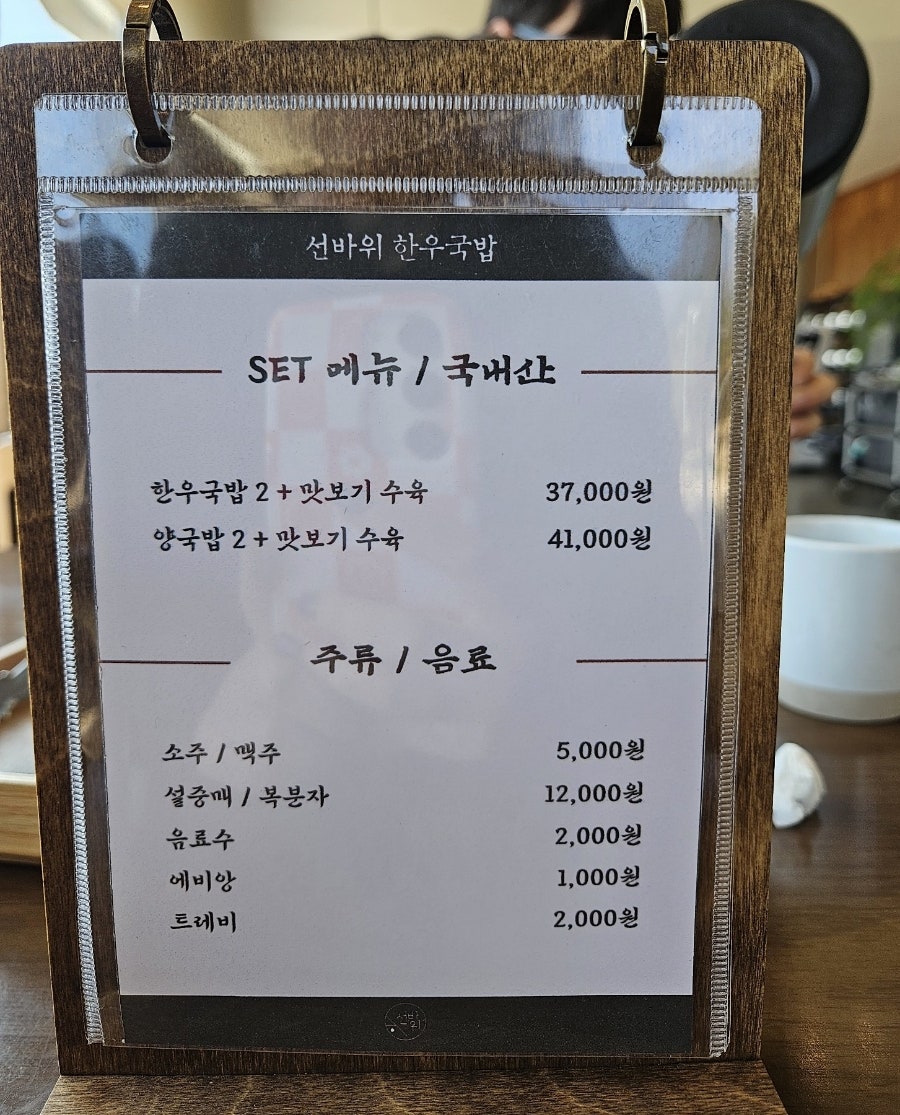 선바위 한우국밥
SET 메뉴 / 국내산
한우국밥 2 + 맛보기 수육 37,000원
양국밥 2 + 맛보기 수육 41,000원
주류 / 음료
소주 / 맥주 5,000원
설중매 / 복분자 12,000원
음료수 2,000원
에비앙 1,000원
트레비 2,000원
선바위